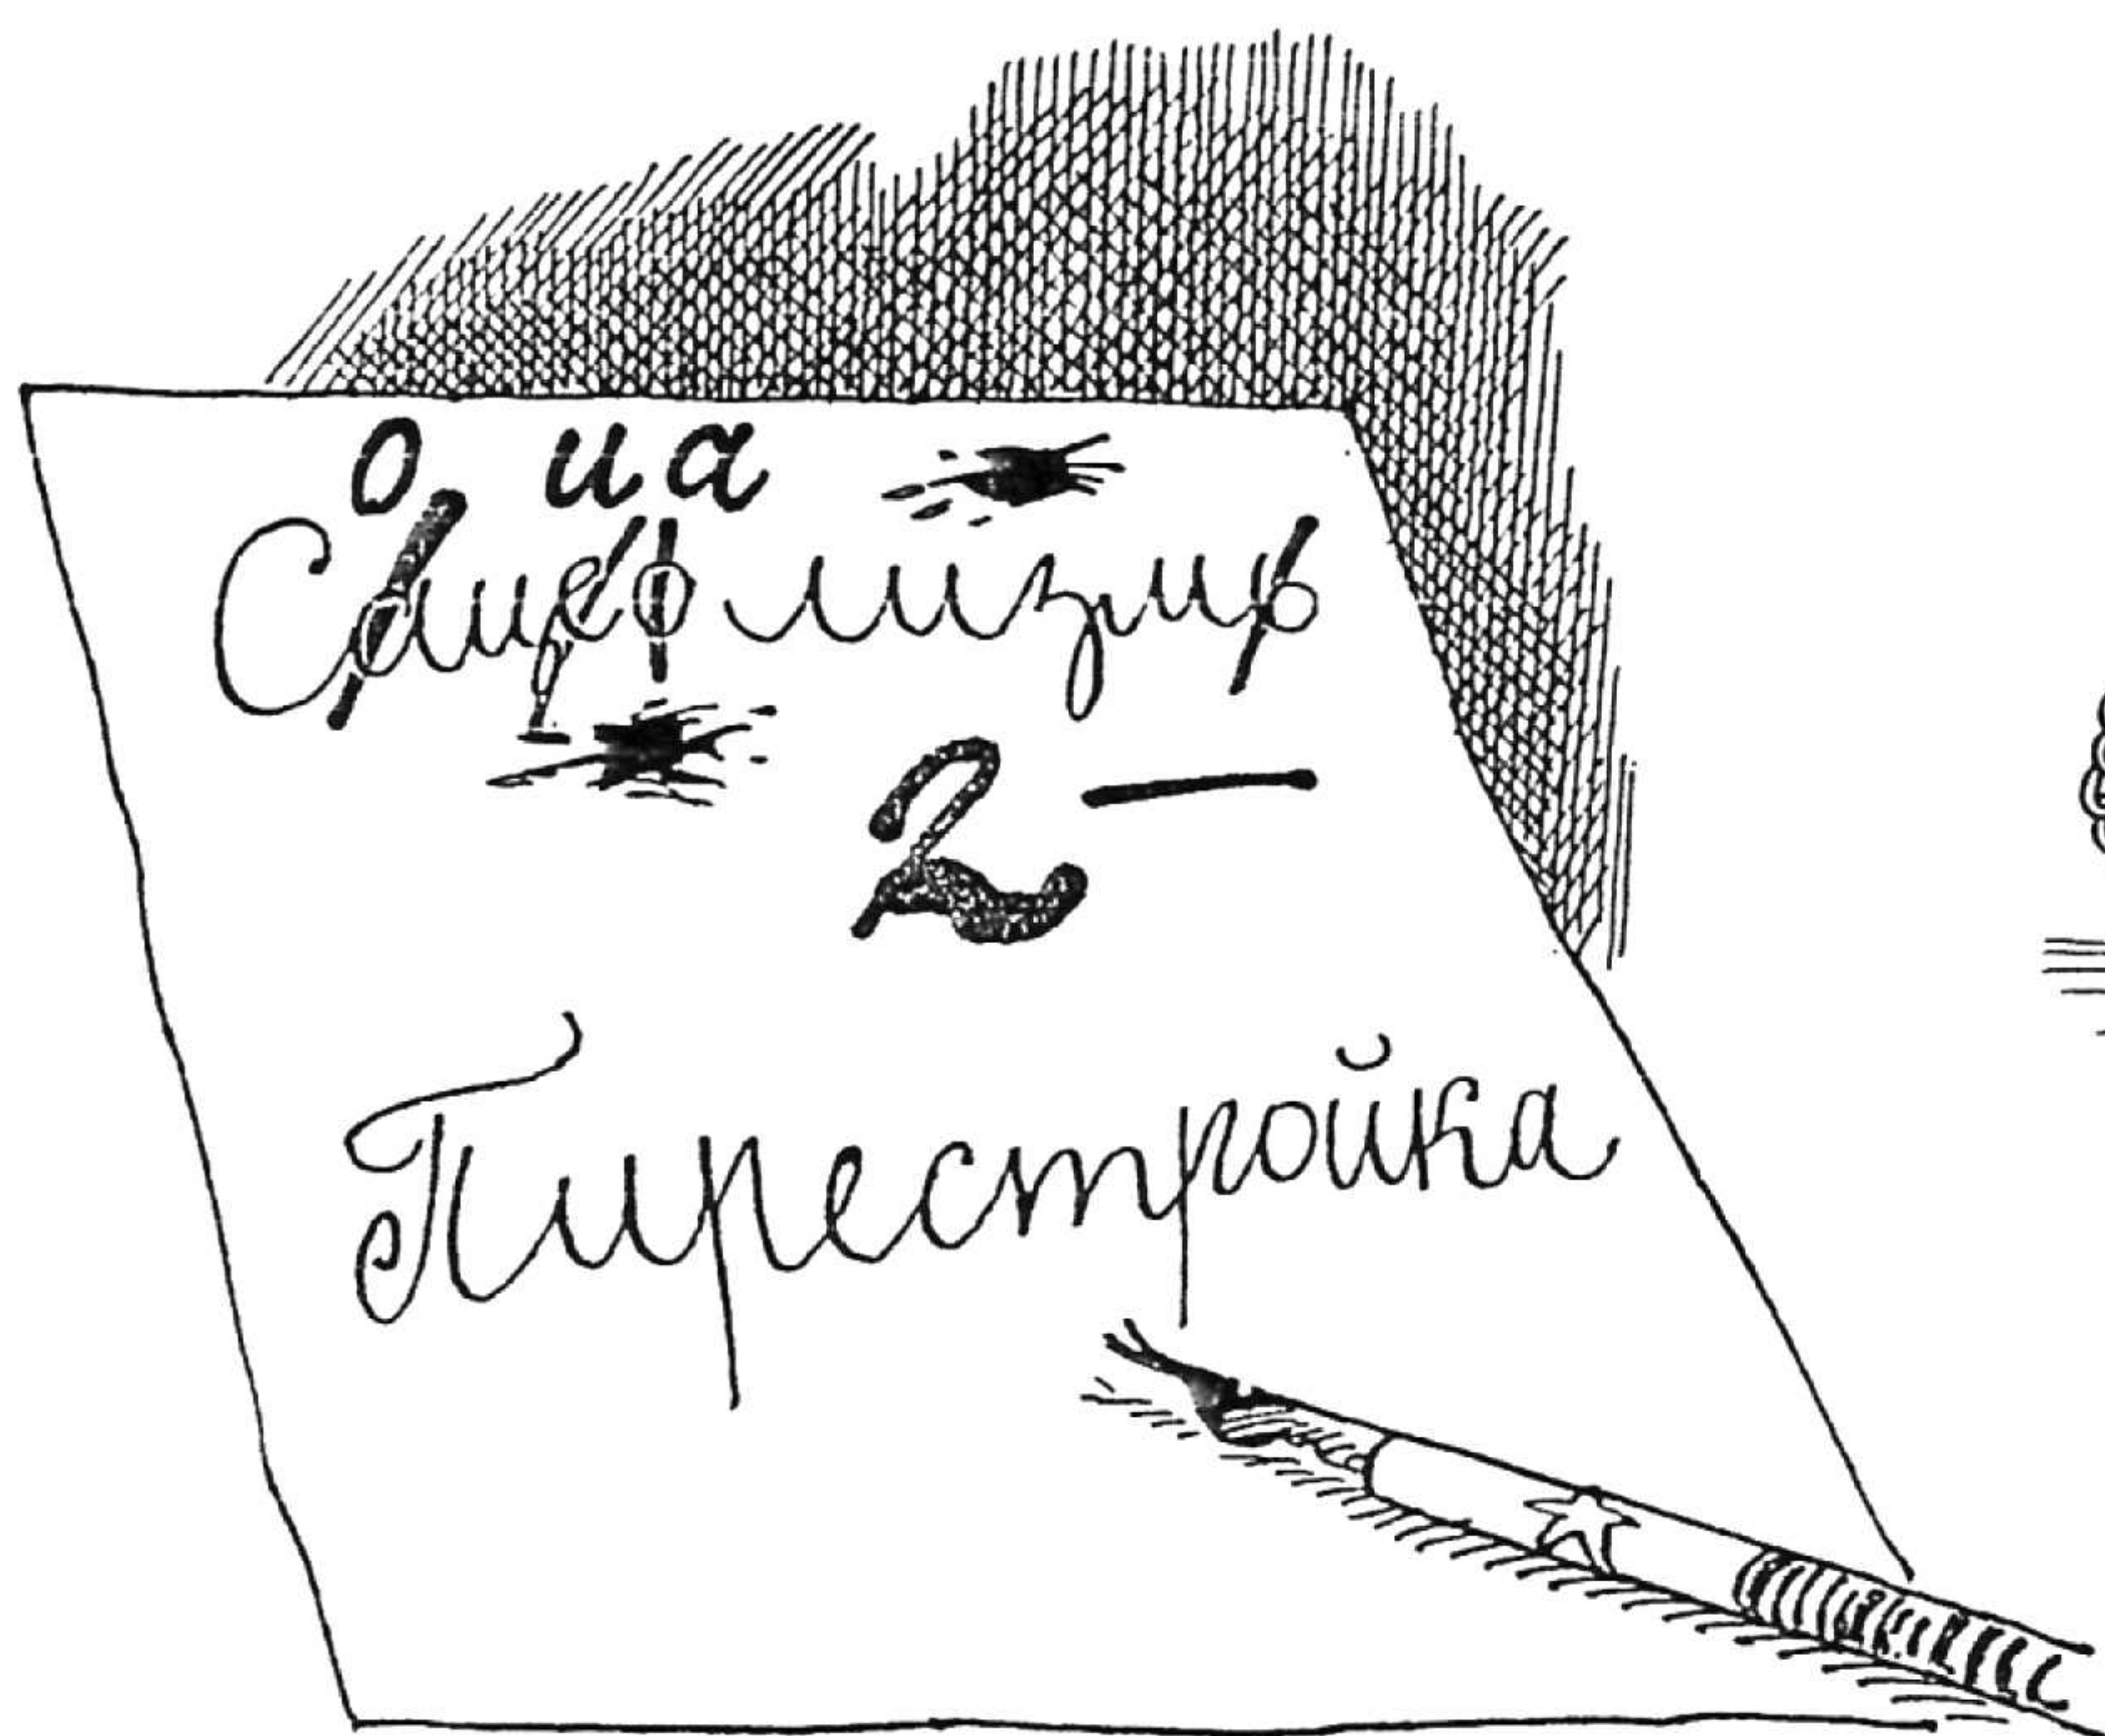 о иа
Сацеолизмь
2 –
Пирестройка